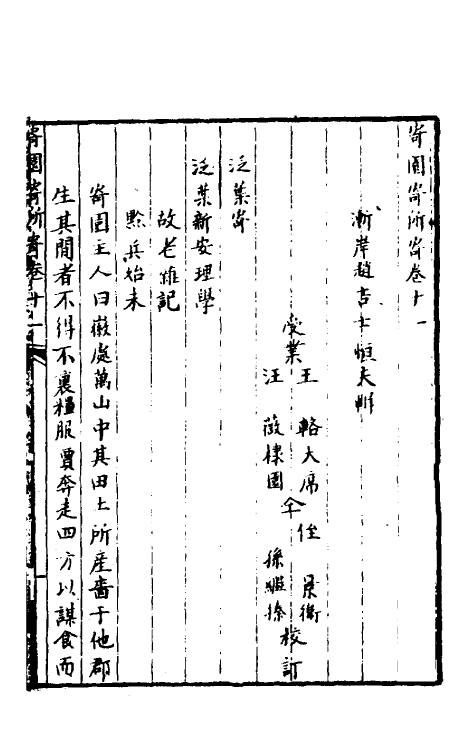 寄園寄所寄卷十一
漸岸趙吉士恒夫輯
受業
王　輅大席
汪　薇棣園
仝
侄　景衡
孫繼抃
校訂
泛葉寄
泛葉新安理學
故老雜記
黟兵始末
寄園主人曰嶶處萬山中其田土所產嗇于他郡
生其間者不得不裹糧服賈奔走四方以謀食而
寄園寄所寄卷十一